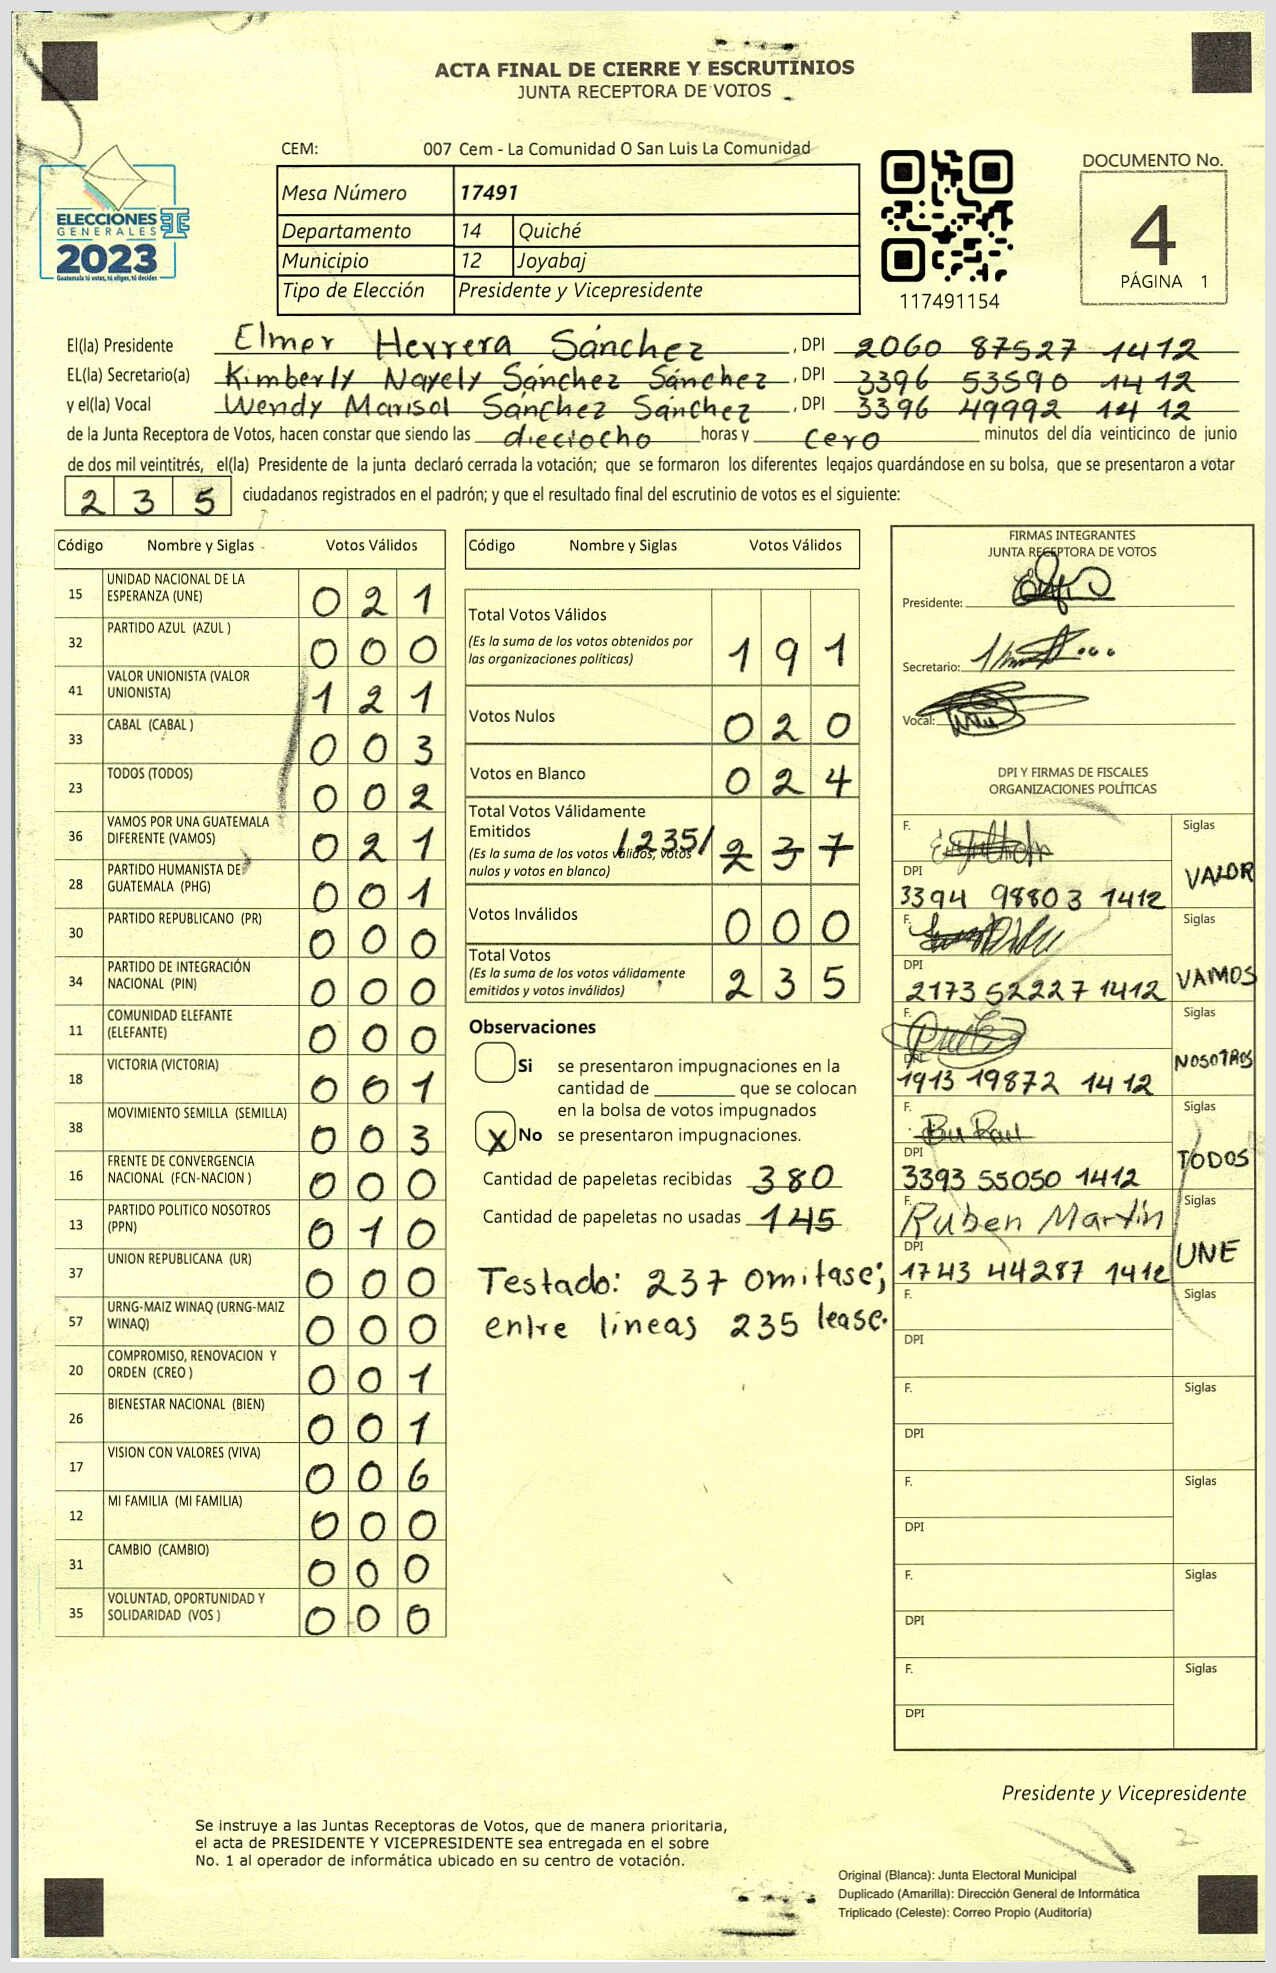 ACTA FINAL DE CIERRE Y ESCRUTINIOS
JUNTA RECEPTORA DE VOTOS
CEM: 007 Cem - La Comunidad O San Luis La Comunidad
ELECCIONES
GENERALES
2023
Guatemala tú votas, tú eliges, tú decides
Mesa Número 17491
Departamento 14 Quiché
Municipio 12 Joyabaj
Tipo de Elección Presidente y Vicepresidente
117491154
DOCUMENTO No.
4
PÁGINA 1
El(la) Presidente Elmer Herrera Sánchez, DPI 2060 87527 1412
EL(la) Secretario(a) Kimberly Nayely Sánchez Sánchez, DPI 3396 53590 1412
y el(la) Vocal Wendy Marisol Sánchez Sánchez, DPI 3396 49992 1412
de la Junta Receptora de Votos, hacen constar que siendo las dieciocho horas y cero minutos del día veinticinco de junio
de dos mil veintitrés, el(la) Presidente de la junta declaró cerrada la votación; que se formaron los diferentes legajos guardándose en su bolsa, que se presentaron a votar
2 3 5 ciudadanos registrados en el padrón; y que el resultado final del escrutinio de votos es el siguiente:
Código Nombre y Siglas Votos Válidos
15 UNIDAD NACIONAL DE LA ESPERANZA (UNE) 0 2 1
32 PARTIDO AZUL (AZUL ) 0 0 0
41 VALOR UNIONISTA (VALOR UNIONISTA) 1 2 1
33 CABAL (CABAL ) 0 0 3
23 TODOS (TODOS) 0 0 2
36 VAMOS POR UNA GUATEMALA DIFERENTE (VAMOS) 0 2 1
28 PARTIDO HUMANISTA DE GUATEMALA (PHG) 0 0 1
30 PARTIDO REPUBLICANO (PR) 0 0 0
34 PARTIDO DE INTEGRACIÓN NACIONAL (PIN) 0 0 0
11 COMUNIDAD ELEFANTE (ELEFANTE) 0 0 0
18 VICTORIA (VICTORIA) 0 0 1
38 MOVIMIENTO SEMILLA (SEMILLA) 0 0 3
16 FRENTE DE CONVERGENCIA NACIONAL (FCN-NACION ) 0 0 0
13 PARTIDO POLITICO NOSOTROS (PPN) 0 1 0
37 UNION REPUBLICANA (UR) 0 0 0
57 URNG-MAIZ WINAQ (URNG-MAIZ WINAQ) 0 0 0
20 COMPROMISO, RENOVACION Y ORDEN (CREO ) 0 0 1
26 BIENESTAR NACIONAL (BIEN) 0 0 1
17 VISION CON VALORES (VIVA) 0 0 6
12 MI FAMILIA (MI FAMILIA) 0 0 0
31 CAMBIO (CAMBIO) 0 0 0
35 VOLUNTAD, OPORTUNIDAD Y SOLIDARIDAD (VOS ) 0 0 0
Código Nombre y Siglas Votos Válidos
Total Votos Válidos
(Es la suma de los votos obtenidos por
las organizaciones políticas) 1 9 1
Votos Nulos 0 2 0
Votos en Blanco 0 2 4
Total Votos Válidamente
Emitidos /235/ 2 3 7
(Es la suma de los votos válidos, votos
nulos y votos en blanco)
Votos Inválidos 0 0 0
Total Votos
(Es la suma de los votos válidamente
emitidos y votos inválidos) 2 3 5
Observaciones
Si se presentaron impugnaciones en la
cantidad de que se colocan
en la bolsa de votos impugnados
X No se presentaron impugnaciones.
Cantidad de papeletas recibidas 380
Cantidad de papeletas no usadas 145
Testado: 237 omitase;
entre líneas 235 lease.
FIRMAS INTEGRANTES
JUNTA RECEPTORA DE VOTOS
Presidente:
Secretario:
Vocal:
DPI Y FIRMAS DE FISCALES
ORGANIZACIONES POLÍTICAS
F. Siglas
DPI VALOR
3394 98803 1412
F. Siglas
DPI VAMOS
2173 52227 1412
F. Siglas
DPI NOSOTROS
1913 19872 1412
F. Siglas
DPI TODOS
3393 55050 1412
F. Ruben Martín Siglas
DPI UNE
1743 44287 1412
F. Siglas
DPI
F. Siglas
DPI
F. Siglas
DPI
F. Siglas
DPI
F. Siglas
DPI
Presidente y Vicepresidente
Se instruye a las Juntas Receptoras de Votos, que de manera prioritaria,
el acta de PRESIDENTE Y VICEPRESIDENTE sea entregada en el sobre
No. 1 al operador de informática ubicado en su centro de votación.
Original (Blanca): Junta Electoral Municipal
Duplicado (Amarilla): Dirección General de Informática
Triplicado (Celeste): Correo Propio (Auditoría)